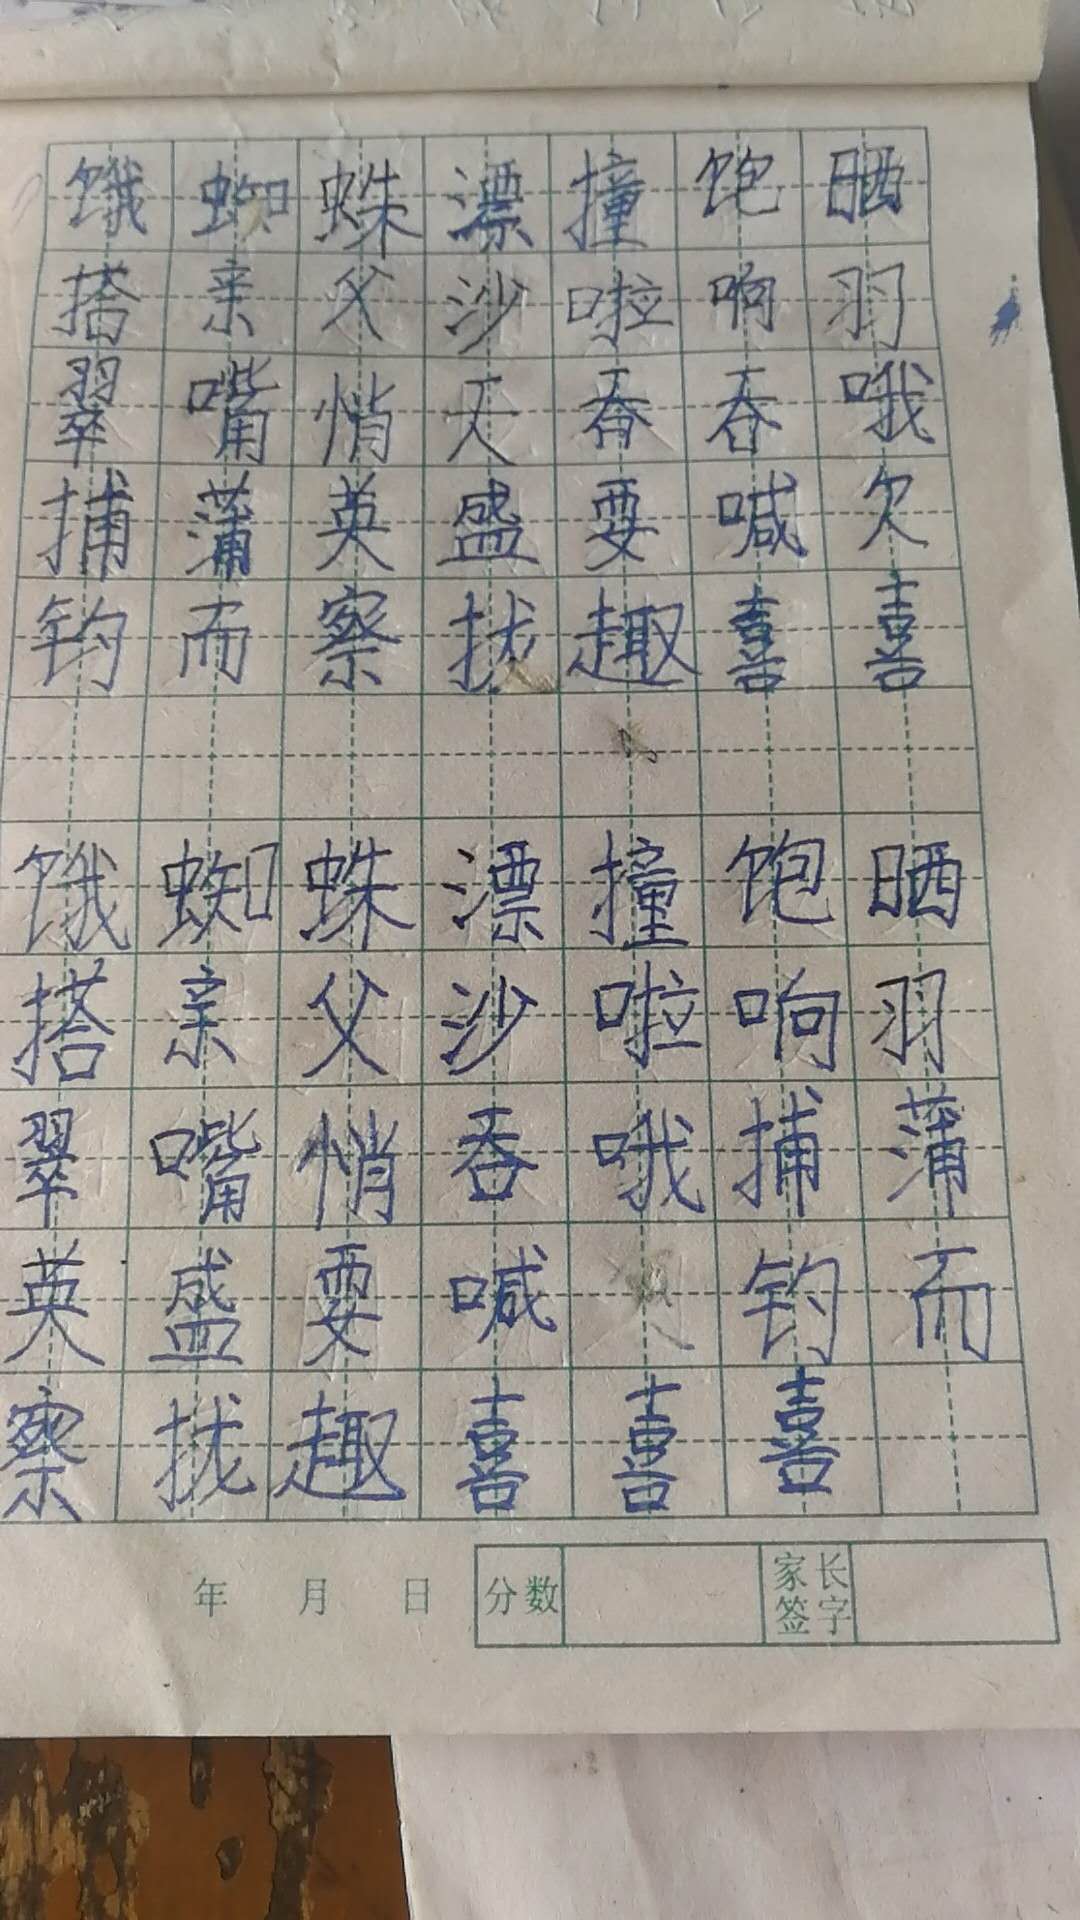 饿蜘蛛漂撞饱晒
搭亲父沙啦响羽
翠嘴悄吞吞哦
捕蒲英盛要喊欠
钓而察拢趣喜喜
饿蜘蛛漂撞饱晒
搭亲父沙啦响羽
翠嘴悄吞哦捕蒲
英盛耍喊钓而
察拢趣喜喜喜
年 月 日 分数 家长签字